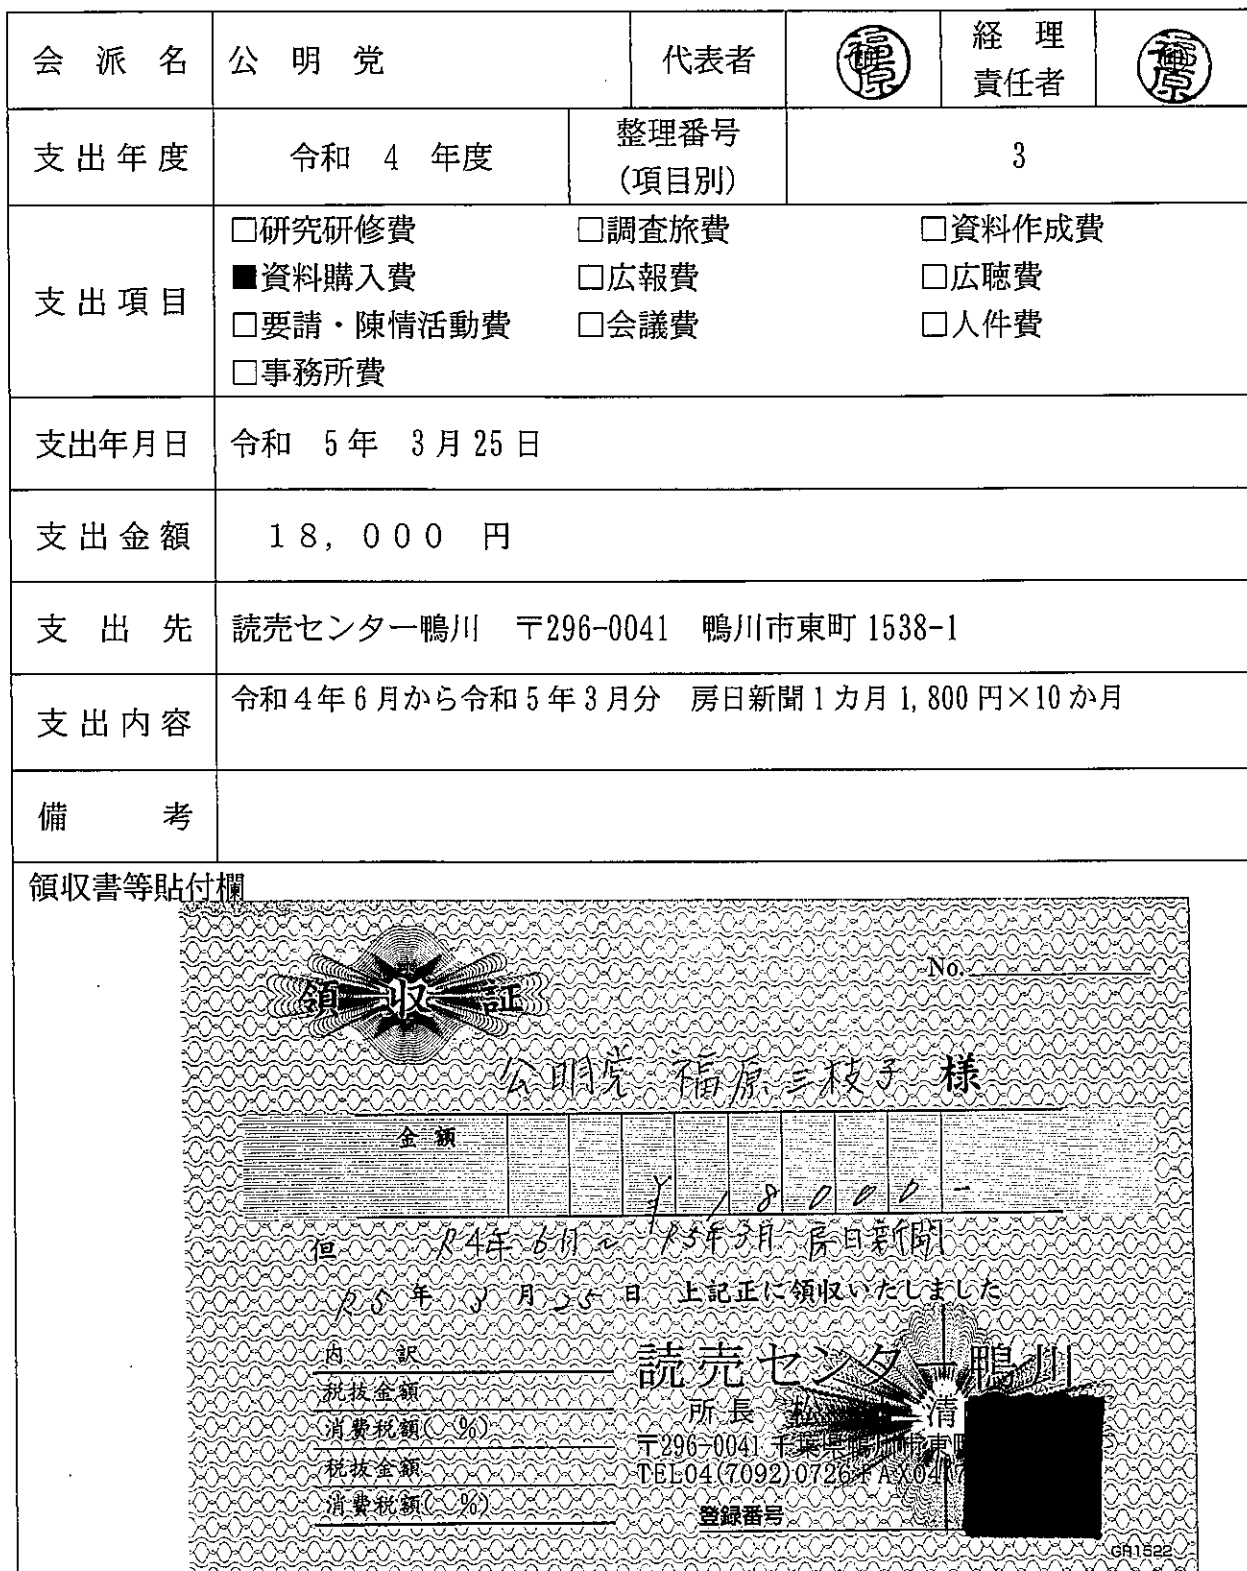 会派名 公明党 代表者 福原 経理責任者 福原
支出年度 令和 4 年度 整理番号(項目別) 3
支出項目
□研究研修費 □調査旅費 □資料作成費
■資料購入費 □広報費 □広聴費
□要請・陳情活動費 □会議費 □人件費
□事務所費
支出年月日 令和 5年 3月25日
支出金額 18,000 円
支出先 読売センター鴨川 〒296-0041 鴨川市東町1538-1
支出内容 令和4年6月から令和5年3月分 房日新聞1カ月1,800円×10か月
備考
領収書等貼付欄
領収証
No.
公明党 福原三枝子 様
金額 ¥18000-
但 R4年6月~R5年3月 房日新聞
R5年3月25日 上記正に領収いたしました
内訳
税抜金額
消費税額( %)
税抜金額
消費税額( %)
読売センター鴨川
所長 松 清
〒296-0041 千葉県鴨川市東町
TEL04(7092)0726 FAX04(7
登録番号
GR1522